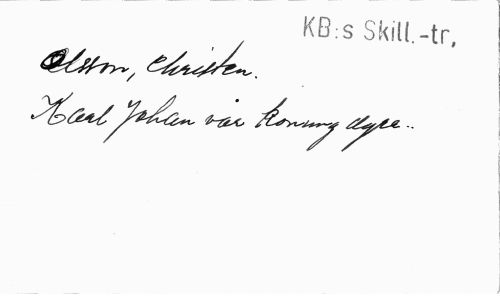 KB:s Skill.-tr.
Olsson, Christen.
Karl Johan vår konung dyre..